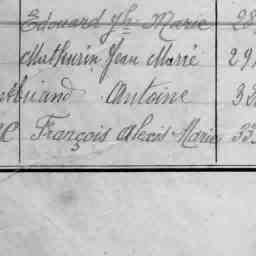 Edouard Jh Marie 28
Mathurin Jean Marie 29
Antoine 32
François Alexis Marie 33